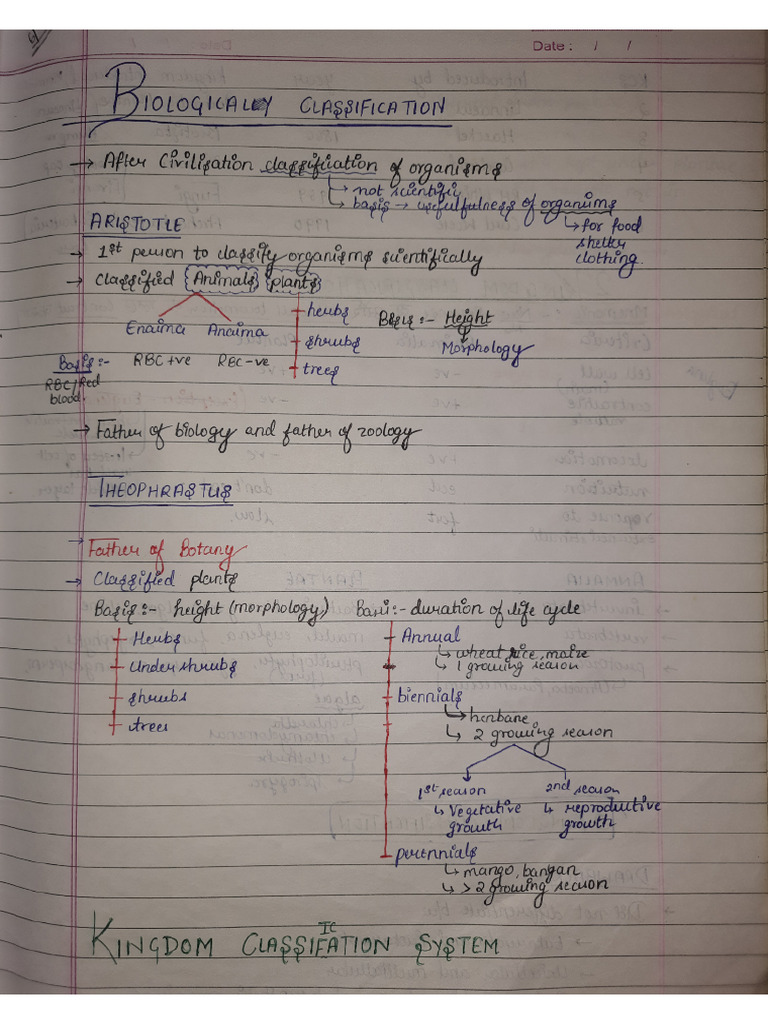 Date : / /
BIOLOGICALLY CLASSIFICATION
→ After Civilisation classification of organisms
↳ not scientific
↳ basis → usefulfulness of organisms
↳ for food
shelter
clothing
ARISTOTLE
→ 1st person to classify organisms scientifically
→ Classified {Animals} {plants}
Enaima Anaima
herbs
shrubs
trees
Basis :- Height
Morphology
Basis :- RBC +ve RBC -ve
RBC/Red
blood.
→ Father of biology and father of zoology
THEOPHRASTUS
→ Father of Botany
→ Classified plants
Basis :- height (morphology) Basis :- duration of life cycle
Herbs
Under shrubs
shrubs
trees
Annual
↳ wheat, rice, maize
↳ 1 growing season
biennials
↳ henbane
↳ 2 growing season
1st season 2nd season
↳ Vegetative ↳ reproductive
growth growth
perennials
↳ mango, bangan
↳ >2 growing season
IC
KINGDOM CLASSIFATION SYSTEM